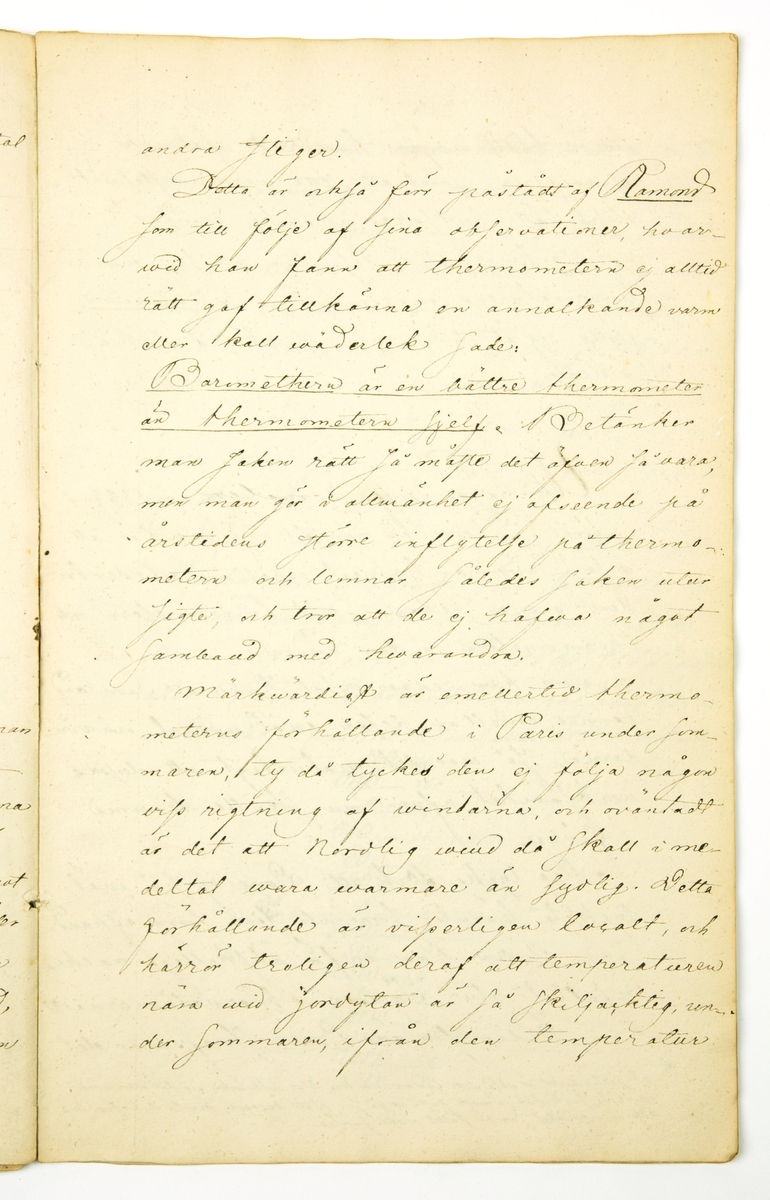 andra stiger.
Detta är också förr påstådt af Ramond
som till följe af sina observationer, hvar-
wid han fann att thermometern ej alltid
rätt gaf tillkänna en annalkande varm
eller kall wäderlek sade:
Baromethern är en bättre thermometer
än thermometern sjelf. Betänker
man saken rätt så måste det äfven så vara,
men man gör i allmänhet ej afseende på
årstidens större inflytelse på thermo-
metern och lemnar således saken utur
sigte, och tror att de ej hafwa något
samband med hwarandra.
Märkwärdigt är emellertid thermo-
meterns förhållande i Paris under som-
maren, ty då tyckes den ej följa någon
viss rigtning af windarna, och oväntadt
är det att Nordlig wind då skall i me-
deltal wara warmare än sydlig. Detta
förhållande är visserligen localt, och
härrör troligen deraf att temperaturen
nära wid jordytan är så skiljaktig, un-
der sommaren, ifrån den temperatur